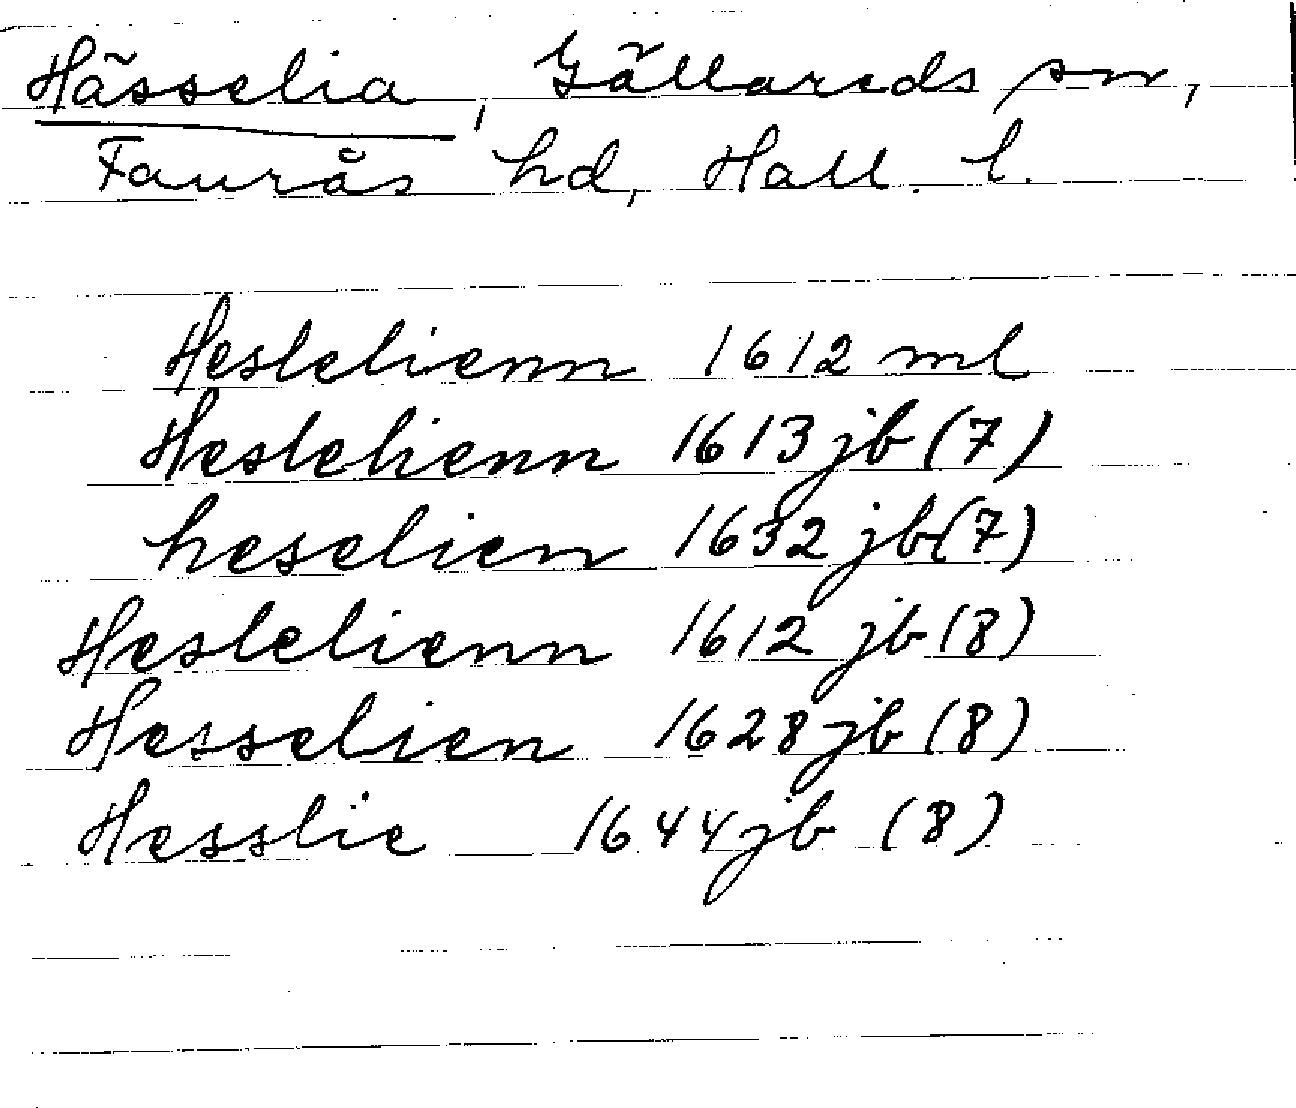 Hässelia, Gällareds sn,
Faurås hd, Hall. l.
Heslelienn 1612 ml
Heslelienn 1613 jb (7)
heselien 1632 jb (7)
Heslelienn 1612 jb (8)
Hesselien 1628 jb (8)
Hesslie 1644 jb (8)